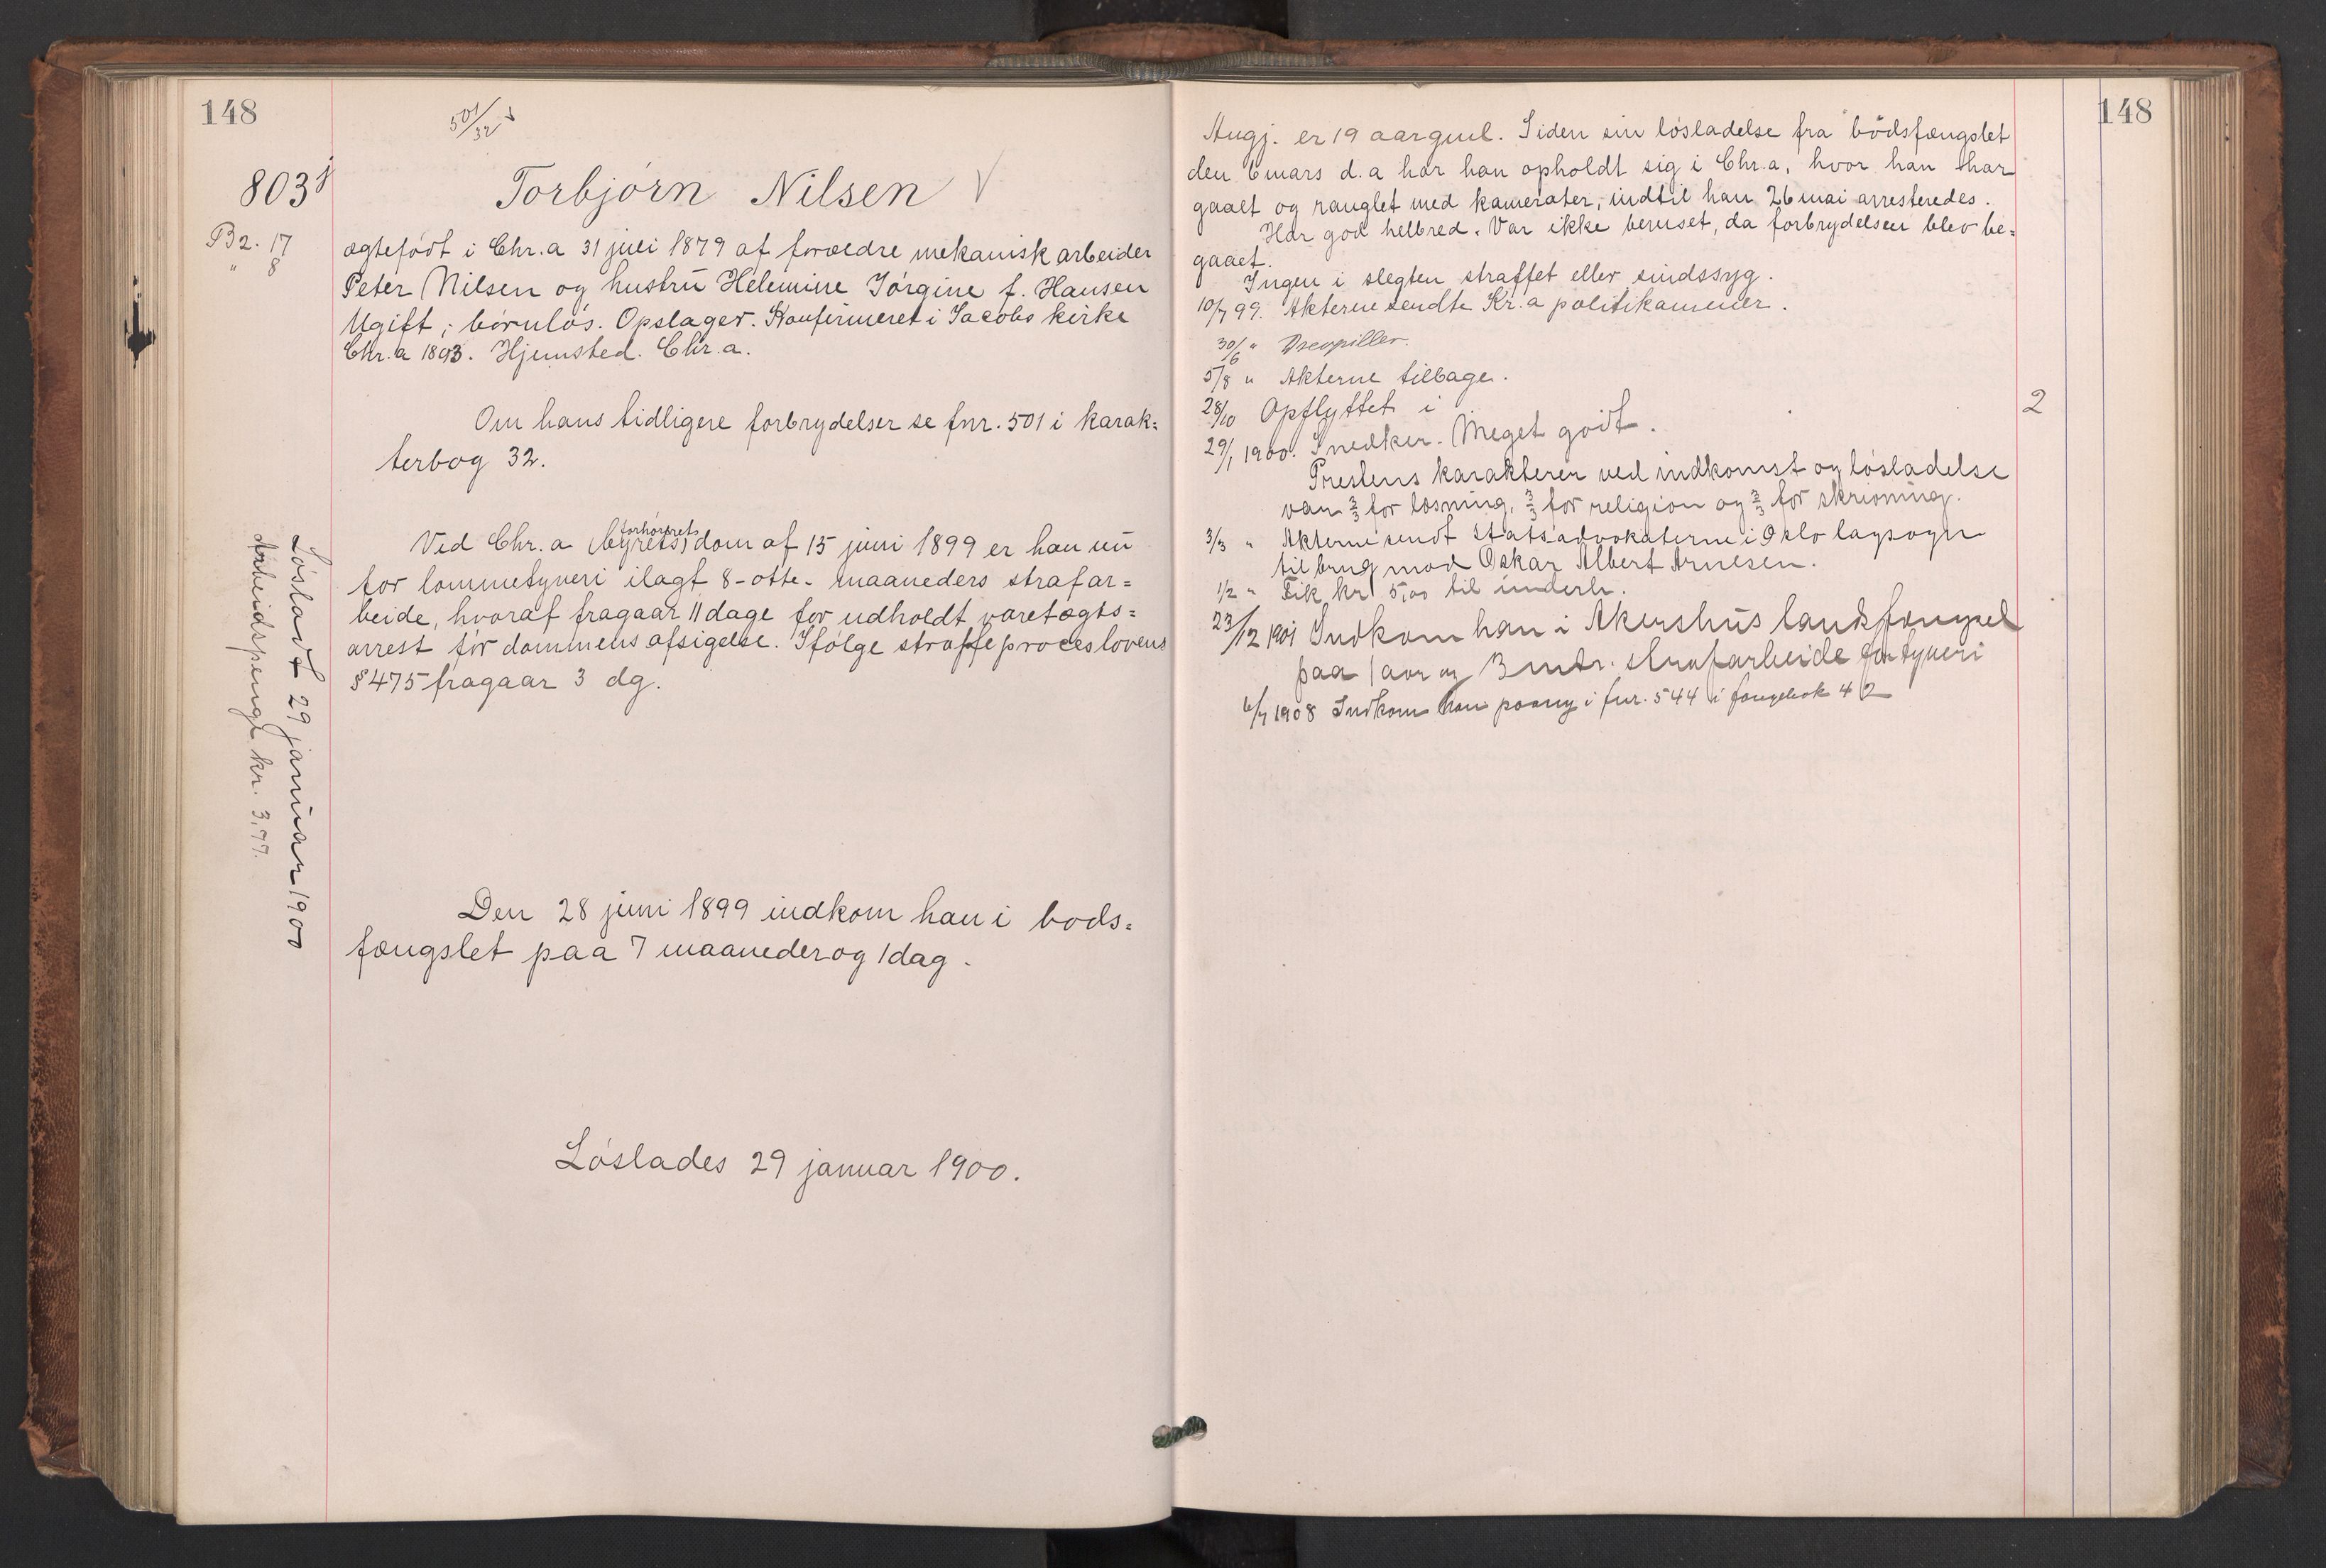 148
501/32
803
B 2. 17
" 8
Torbjórn Nilsen
ægtefódt i Chr.a 31 juli 1879 af forældre mekanisk arbeider
Peter Nilsen og hustru Helemine Jórgine f. Hansen
Ugift; bórnlós. Opslager. Konfirmeret i Jacobs kirke
Chr.a 1893. Hjemsted. Chr.a.
Om hans tidligere forbrydelser se fnr. 501 i karak=
terbog 32.
forhórrets
Ved Chr.a (byrets) dom af 15 juni 1899 er han nu
for lommetyveri ilagt 8-otte- maaneders strafar=
beide, hvoraf fragaar 11 dage for udholdt varetægts=
arrest fór dommens afsigelse. Ifólge straffeproceslovens
§ 475 fragaar 3 dg.
Lósladt 29 januar 1900
Arbeidspenge kr. 3,77.
Den 28 juni 1899 indkom han i bods=
fængslet paa 7 maaneder og 1 dag.
Lóslades 29 januar 1900.
148
Angj. er 19 aar gml. Siden sin lósladelse fra bodsfængslet
den 6 mars d.a har han opholdt sig i Chr.a, hvor han har
gaaet og ranglet med kamerater, indtil han 26 mai arresteredes.
Har god helbred. Var ikke beruset, da forbrydelsen blev be=
gaaet.
Ingen i slegten straffet eller sindssyg.
10/7 99. Akterne sendte Kr.a politikammer.
30/6 "
5/8 " Akterne tilbage.
28/10 Opflyttet i 2
29/1 1900. Snedker. Meget godt.
Prestens karakterer ved indkomst og lósladelse
var 3/3 for læsning, 3/3 for religion og 3/3 for skrivning.
3/3 " Akterne sendt statsadvokaterne i Oslo lagsogn
til brug mod Oskar Albert Arnesen.
1/2 " Fik kr 5,00 til underh.
23/12 1901 Indkom han i Akershus landsfængsel
paa 1 aar og 3 mdr. strafarbeide for tyveri
6/7 1908 Indkom han paany i fnr. 544 i fangebok 42